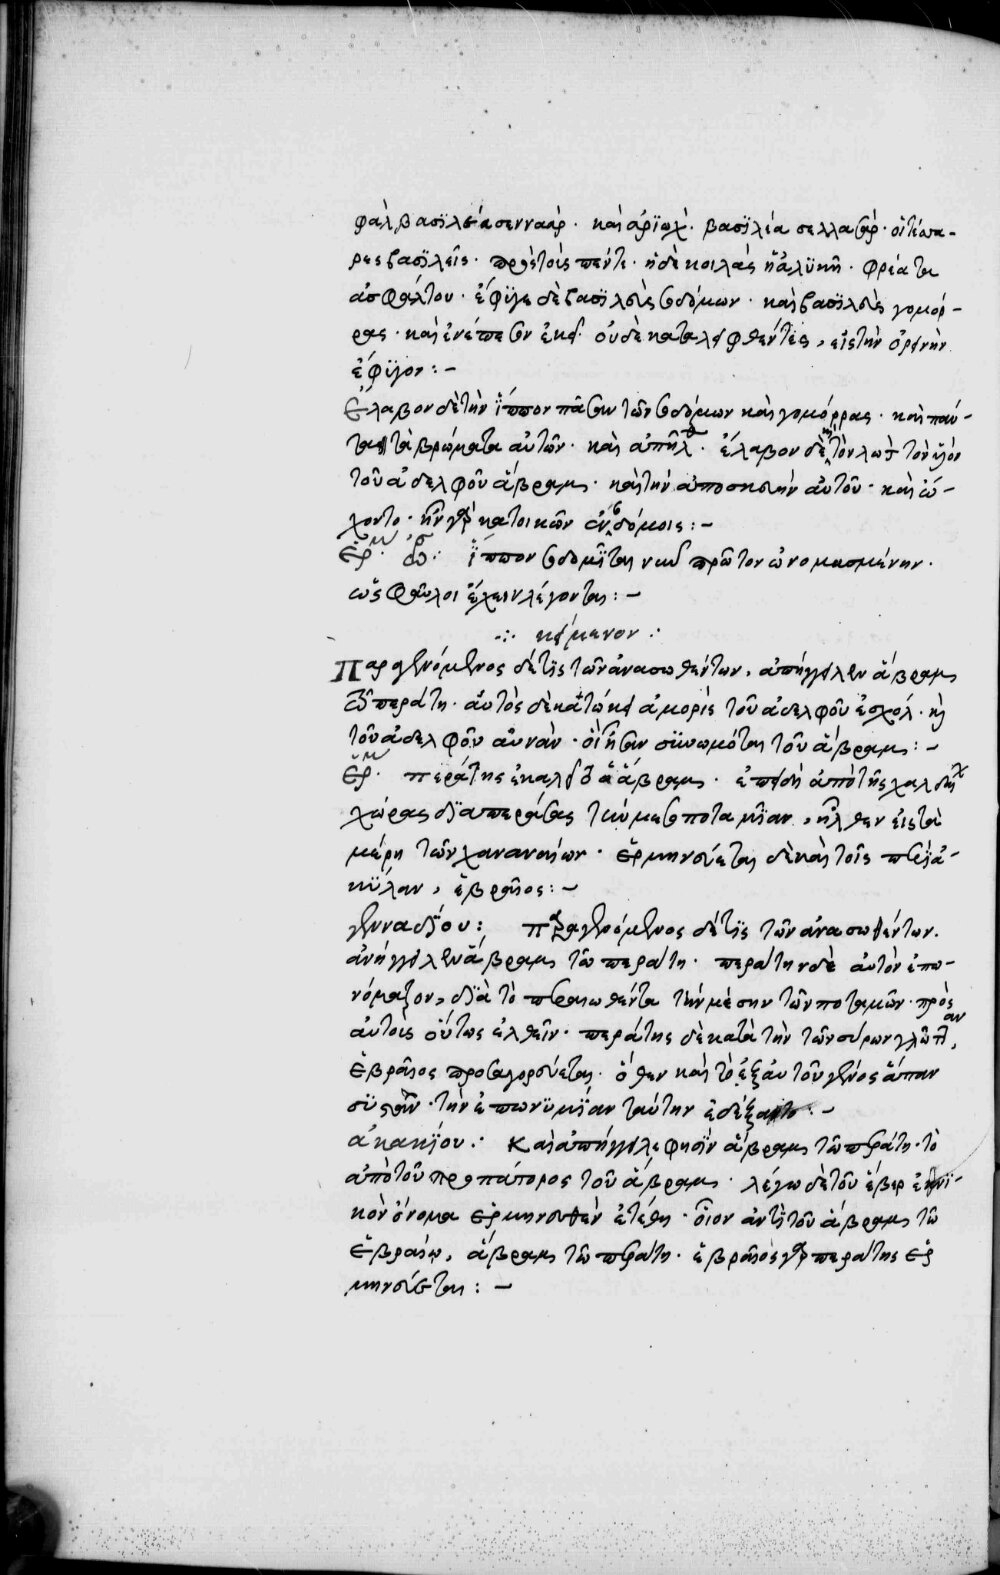 φαλ βασϊλέα σενναάρ · καὶ ἀρϊωχ · βασϊλέα σελλασάρ · οἱ τέσσα-
ρες βασϊλεῖς · πρὸς τοὺς πέντε · ἡ δὲ κοιλὰς ἡ ἁλϋκὴ · φρέατα
ἀσφάλτου · ἔφϋγε δὲ βασϊλεὺς σοδόμων · καὶ βασϊλεὺς γομόρ-
ρας · καὶ ἐνέπεσον ἐκεῖ · οἱ δὲ καταλειφθέντες, εἰς τὴν ὀρεινὴν
ἔφϋγον : –
Ἔλαβον δὲ τὴν ἵππον πᾶσαν τῶν σοδόμων καὶ γομόρρας · καὶ πάν-
τα τὰ βρώματα αὐτῶν · καὶ ἀπῆλθ · ἔλαβον δὲ καὶ τὸν λωτ τὸν ϋἱὸν
τοῦ ἀδελφοῦ ἄβραμ · καὶ τὴν ἀποσκευὴν αὐτοῦ · καὶ ᾤ-
χοντο · ἦν γὰρ κατοικῶν ἐν σοδόμοις : –
ἑρμ · ἵππον σοδομῖται νῦν πρῶτον ὠνομασμένην ·
ὡς φαῦλοι ἔχειν λέγονται : –
∴ κείμενον :
Παραγενόμενος δέ τϊς τῶν ἀνασωθέντων, ἀπήγγειλεν ἄβραμ
τῶ περάτη · αὐτὸς δὲ κατώκει ἀμορὶς τοῦ ἀδελφοῦ ἐσχολ · καὶ
τοῦ ἀδελφοῦ αὐνὰν · οἳ ἦσαν συνωμόται τοῦ ἄβραμ : –
ἑρμ · περάτης ἐκαλεῖτο ὁ ἄβραμ · ἐπειδὴ ἀπὸ τῆς χαλδαϊκῆς
χώρας δϊαπεράσας τὴν μεσοποταμϊαν, ἦλθεν εἰς τὰ
μέρη τῶν χαναναίων · ἑρμηνεύεται δὲ καὶ τοῖς περὶ ἀ-
κϋλαν, ἑβραῖος : –
γενναδϊου : παραγενόμενος δέ τϊς τῶν ἀνασωθέντων ·
ἀνήγγειλεν ἄβραμ τῶ περάτη · περάτην δὲ αὐτὸν ἐπω-
νόμαζον, δϊὰ τὸ περαιωθέντα τὴν μέσην τῶν ποταμῶν · πρὸς
αὐτοὺς οὕτως ἐλθεῖν · περάτης δὲ κατὰ τὴν τῶν σύρων γλῶτταν,
ἑβραῖος προσαγορεύεται · ὅθεν καὶ τὸ ἐξ αὐτοῦ γένος ἅπαν
τὴν ἐπωνϋμϊαν ταύτην ἐδέξατο : –
ἀκακϊου : Καὶ ἀπήγγειλε φησὶν ἄβραμ τῶ περάτη · τὸ
ἀπὸ τοῦ προπάτορος τοῦ ἄβραμ · λέγω δὲ τοῦ ἕβερ ἐθνϊ-
κὸν ὄνομα ἑρμηνευθὲν ἐτέθη · οἷον ἀντὶ τοῦ ἄβραμ τῶ
ἑβραίω, ἄβραμ τῶ περάτη · ἑβραῖος γὰρ περάτης ἑρ
μηνεύεται : –